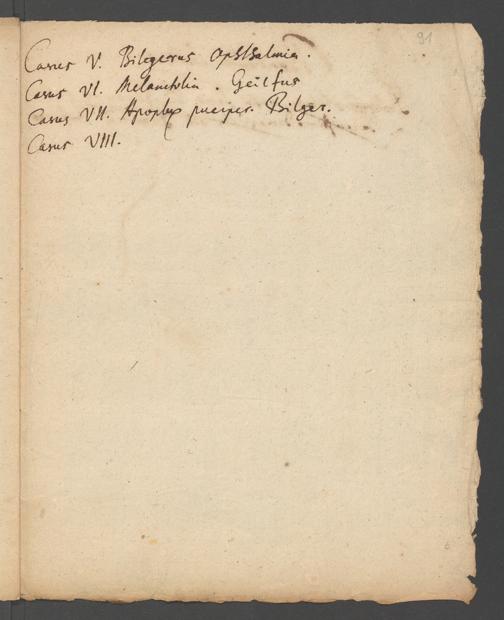 91
Casus V. Bilgerus Ophthalmia.
Casus VI. Melancholia. Geilfus
Casus VII. Apoplex Bilger.
Casus VIII.